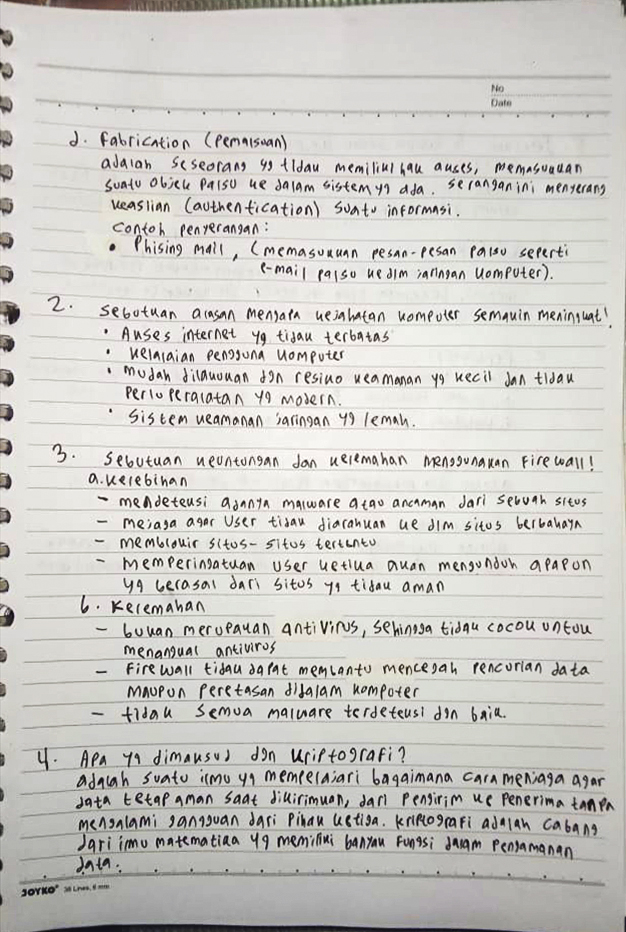 No
Date
d. Fabrication (Pemalsuan)
adalah seseorang yg tidak memiliki hak akses, memasukkan
suatu objek palsu ke dalam sistem yg ada. serangan ini menyerang
keaslian (authentication) suatu informasi.
Contoh penyerangan:
• Phising mail, (memasukkan pesan-pesan palsu seperti
e-mail palsu ke dlm jaringan komputer).
2. Sebutkan alasan mengapa kejahatan komputer semakin meningkat!
• Akses internet yg tidak terbatas
• kelalaian pengguna komputer
• mudah dilakukan dgn resiko keamanan yg kecil dan tidak
perlu peralatan yg modern.
• Sistem keamanan jaringan yg lemah.
3. Sebutkan keuntungan dan kelemahan menggunakan Firewall!
a. kelebihan
- mendeteksi adanya malware atau ancaman dari sebuah situs
- mejaga agar User tidak diarahkan ke dlm situs berbahaya
- memblokir situs-situs tertentu
- Memperingatkan User ketika akan mengunduh apapun
yg berasal dari situs yg tidak aman
b. Kelemahan
- bukan merupakan antivirus, sehingga tidak cocok untuk
menangkal antivirus
- Firewall tidak dapat membantu mencegah pencurian data
maupun peretasan didalam komputer
- tidak semua malware terdeteksi dgn baik.
4. Apa yg dimaksud dgn kriptografi?
adalah suatu ilmu yg mempelajari bagaimana cara menjaga agar
data tetap aman saat dikirimkan, dari Pengirim ke Penerima tanpa
mengalami gangguan dari pihak ketiga. kriptografi adalah cabang
dari ilmu matematika yg memiliki banyak fungsi dalam pengamanan
data.
JOYKO® 36 Lines, 6 mm